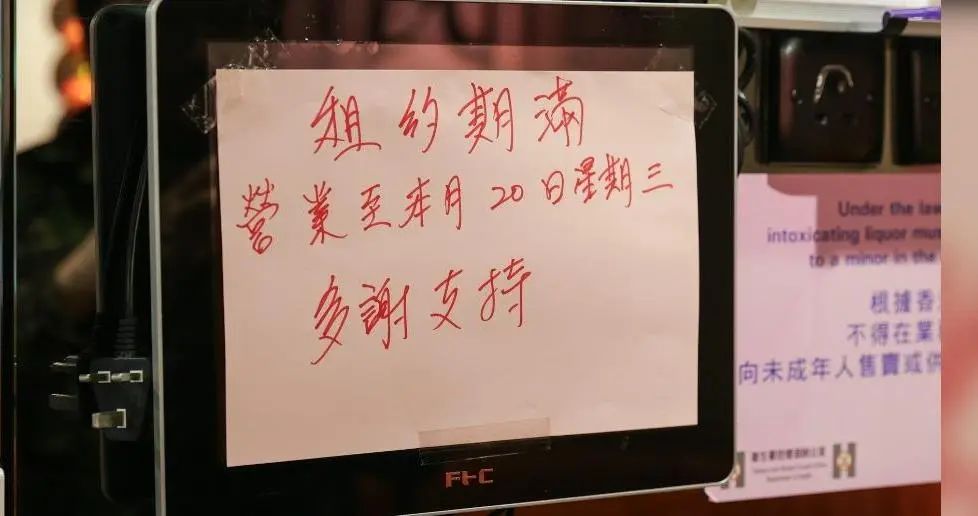 租約期滿
營業至本月20日星期三
多謝支持
FtC
Under the law
intoxicating liquor mus
to a minor in the
根據香
不得在業
向未成年人售賣或供